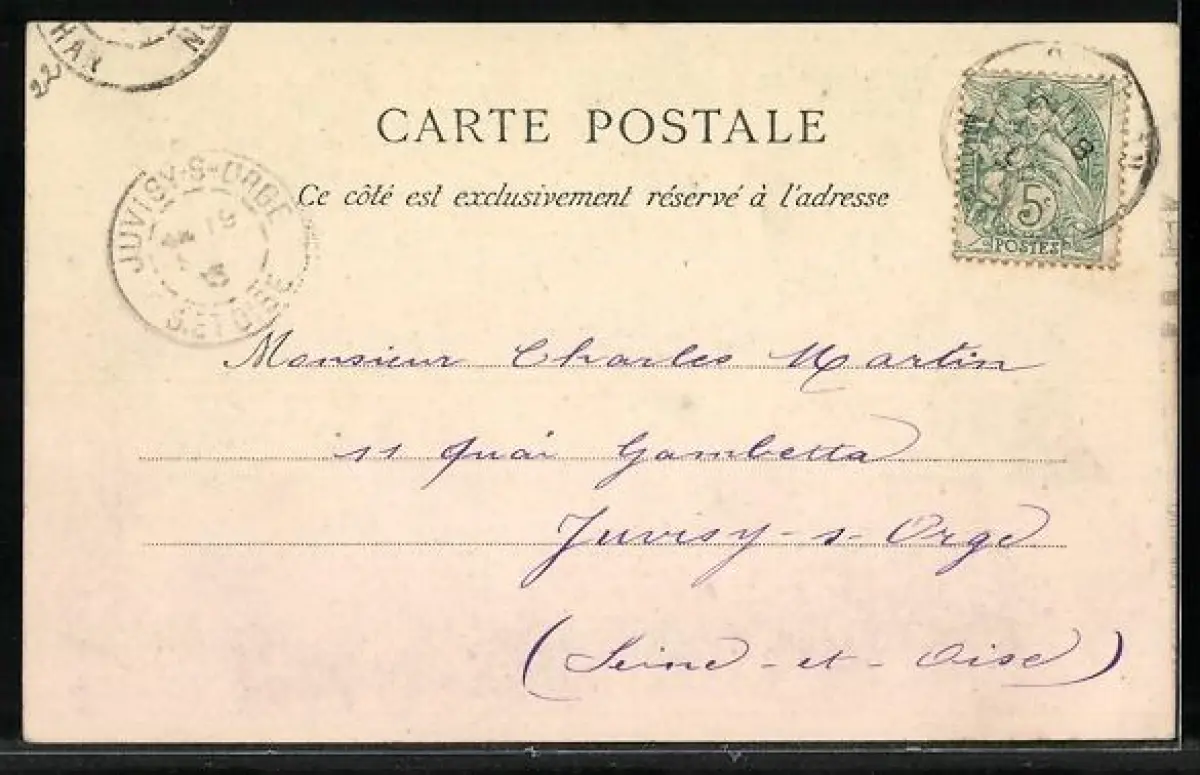 22
CARTE POSTALE
JUVISY-S-ORGE
S. ET OISE
Ce côté est exclusivement réservé à l'adresse
5c
POSTES
Monsieur Charles Martin
11 quai Gambetta
Juvisy-s-Orge
(Seine-et-Oise)